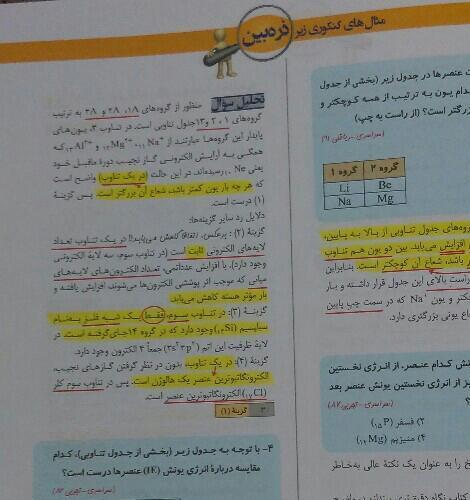 مثال های کنکوری زیر ذره‌بین
تحلیل سؤال منظور از گروه‌های ۱A، ۲A و ۳A به ترتیب
گروه‌های ۱، ۲ و ۱۳ جدول تناوبی است. در تناوب ۳، یون‌های
پایدار این گروه‌ها عبارتند از ₁₁Na⁺، ₁₂Mg²⁺ و ₁₃Al³⁺ که
همگی به آرایش الکترونی گاز نجیب دورهٔ ماقبل خود
یعنی ₁₀Ne رسیده‌اند. در این حالت (در یک تناوب) واضح است
که هر چه بار یون کمتر باشد، شعاع آن بزرگتر است. پس گزینهٔ
(۱) درست است.
دلایل رد سایر گزینه‌ها:
گزینهٔ (۲): برعکس، اتفاقاً کاهش می‌یابد!! در یک تناوب تعداد
لایه‌های الکترونی ثابت است (در تناوب سوم، سه لایهٔ الکترونی
وجود دارد). با افزایش عدداتمی، تعداد الکترون‌های لایه‌های
میانی که موجب اثر پوششی الکترون‌ها می‌شوند افزایش یافته و
بار مؤثر هسته کاهش می‌یابد.
گزینهٔ (۳): در تناوب سوم، فقط یک شبه فلز بنام
سیلیسیم (₁₄Si) وجود دارد که در گروه ۱۴ جای گرفته است. در
لایهٔ ظرفیت این اتم (۳s² ۳p²) جمعاً ۴ الکترون وجود دارد.
گزینهٔ (۴): در یک تناوب، بدون در نظر گرفتن گازهای نجیب،
الکترونگاتیوترین عنصر یک هالوژن است. پس در تناوب سوم کلر
(₁₇Cl) الکترونگاتیوترین عنصر است.
۳- گزینهٔ (۱)
۴- با توجه به جدول زیر (بخشی از جدول تناوبی)، کدام
مقایسه دربارهٔ انرژی یونش (IE) عنصرها درست است؟
عنصرها در جدول زیر (بخشی از جدول
کدام یون به ترتیب از همه کوچکتر و
بزرگتر است؟ (از راست به چپ)
گروه ۱ گروه ۲
Li Be
Na Mg
گروه‌های جدول تناوبی از بالا به پایین،
افزایش می‌یابد. بین دو یون هم تناوب
باشد، شعاع آن کوچکتر است. بنابراین
راست بالای این جدول قرار داشته و بار
کوچکتر و یون Na⁺ که در سمت چپ پایین
شعاع یونی بزرگتری دارد.
کدام عنصر، از انرژی نخستین
نیز از انرژی نخستین یونش عنصر بعد
۲) فسفر (₁₅P)
۴) منیزیم (₁₂Mg)
را به عنوان یک نکتهٔ عالی به‌خاطر